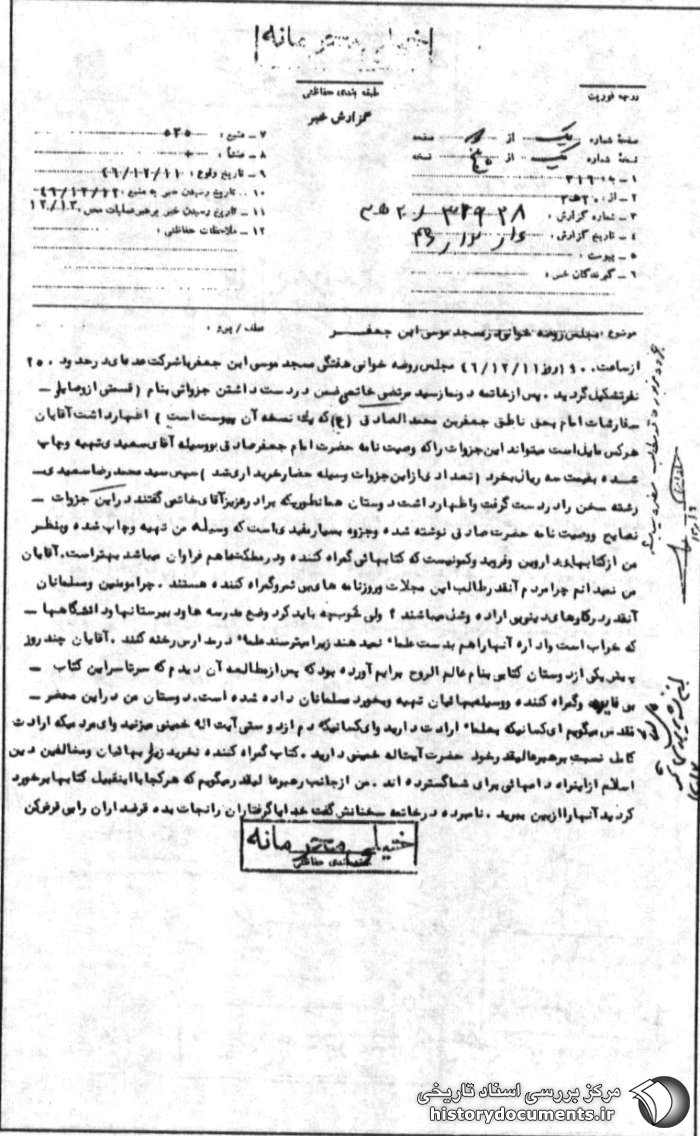 خیلی محرمانه
طبقه بندی حفاظتی
درجه فوریت
گزارش خبر
صفحه شماره یک از صفحه
نسخه شماره یک از نسخه
۱ ـ به ۳۱۶
۲ ـ از ۲۰ هـ ۳
۳ ـ شماره گزارش :
۴ ـ تاریخ گزارش :
۵ ـ پیوست :
۶ ـ گیرندگان خبر :
۷ ـ منبع : ۵۳۵
۸ ـ منشأ :
۹ ـ تاریخ وقوع : ۴۶/۱۲/۱۱
۱۰ ـ تاریخ رسیدن خبر به منبع : ۴۶/۱۲/۱۲
۱۱ ـ تاریخ رسیدن خبر برهبر عملیات محل ۱۲/۱۳
۱۲ ـ ملاحظات حفاظتی :
موضوع : مجلس روضه خوانی در مسجد موسی ابن جعفر عطف / پیرو :
از ساعت روز ۴۶/۱۲/۱۱ مجلس روضه خوانی هفتگی مسجد موسی ابن جعفر با شرکت عده ای در حدود ۲۵۰
نفر تشکیل گردید . پس از خاتمه دو نماز سید مرتضی خاتمی ضمن در دست داشتن جزواتی بنام ( قسمتی از وصایا ـ
سفارشات امام بحق ناطق جعفر بن محمد الصادق (ع) که یک نسخه آن پیوست است ) اظهار داشت آقایان
هر کس مایل است میتواند این جزوات را که وصیت نامه حضرت امام جعفر صادق بوسیله آقای سعیدی تهیه و چاپ
شده بقیمت سه ریال بخرد ( تعدادی از این جزوات وسیله حضار خریداری شد ) سپس سید محمد رضا سعیدی ـ
رشته سخن را در دست گرفت و اظهار داشت دوستان همانطوریکه برادر عزیز آقای خاتمی گفتند در این جزوات ـ
نصایح و وصیت نامه حضرت صادق نوشته شده و جزوه بسیار مفیدی است که وسیله من تهیه و چاپ شده و بنظر
من از کتابهای داروین و فروید و کمونیست که کتابهائی گمراه کننده و در مملکت ما هم فراوان میباشد بهتر است . آقایان
من نمیدانم چرا مردم آنقدر طالب این مجلات و روزنامه های بی ثمر و گمراه کننده هستند . چرا مومنین و مسلمانان
آنقدر در کارهای دینی بی اراده و شل میباشند ؟ ولی خوب چه باید کرد وضع مدرسه ها و دبیرستانها و دانشگاهها ـ
که خراب است و اداره آنها را هم بدست علماء نمیدهند زیرا میترسند علماء در مدارس رخنه کنند . آقایان چند روز
پیش یکی از دوستان کتابی بنام عالم الروح برایم آورده بود که پس از مطالعه آن دیدم که سرتاسر این کتاب ـ
بی فایده و گمراه کننده و وسیله بهائیان تهیه و بخورد مسلمانان داده شده است . دوستان من در این محضر ـ
مقدس میگویم ای کسانیکه بعلماء ارادت دارید و ای کسانیکه دم از دوستی آیت اله خمینی میزنید و ای مردمیکه ارادت
کامل نسبت برهبر عالیقدر خود حضرت آیت اله خمینی دارید . کتاب گمراه کننده نخرید زیرا بهائیان و مخالفین دین
اسلام از این راه دامهائی برای شما گسترده اند . من از جانب رهبر عالیقدر میگویم که هر کجا با اینقبیل کتابها برخورد
کردید آنها را از بین ببرید . نامبرده در خاتمه سخنانش گفت خدایا گرفتاران را نجات بده قرضداران را بی قرض کن
خیلی محرمانه
طبقه بندی حفاظتی
مرکز بررسی اسناد تاریخی
historydocuments.ir